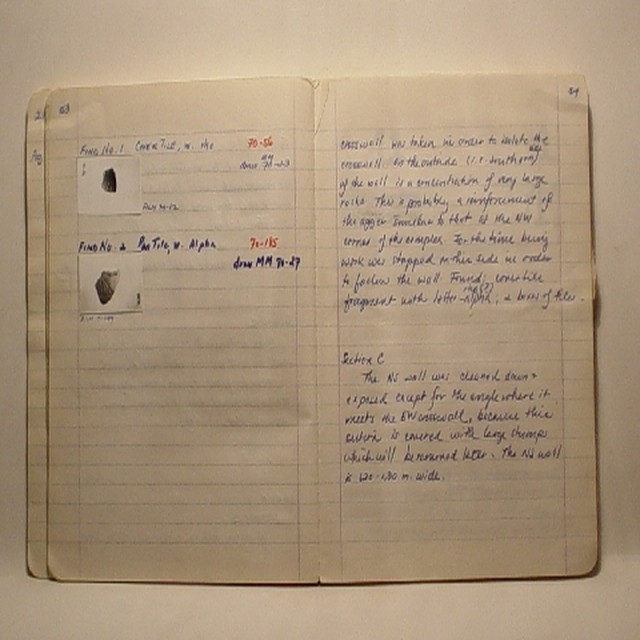 53
FIND No. 1 Cover Tile, w. rho 70-56
FIND No. 2 Pan Tile, w. Alpha 70-185
draw MM 70-27
54
crosswall was taken in order to isolate the
crosswall. On the outside (i.e. southern)
of the wall is a concentration of very large
rocks. This is probably a reinforcement of
the agger similar to that at the NW
corner of the complex. For the time being
work was stopped on this side in order
to follow the wall. Found: cover tile
fragment with letter alpha, 2 boxes of tiles.
Section C
The NS wall was cleaned down +
exposed except for the angle where it
meets the EW crosswall, because this
section is covered with large
which will be removed later. The NS wall
is m. wide.